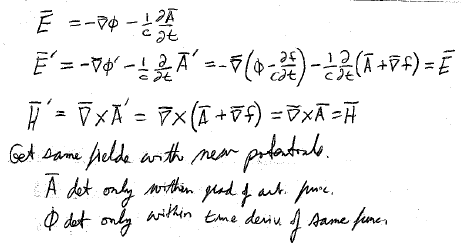 Ē = -∇̄φ - 1/c ∂Ā/∂t
Ē' = -∇̄φ' - 1/c ∂/∂t Ā' = -∇̄(φ - ∂f/c∂t) - 1/c ∂/∂t (Ā + ∇̄f) = Ē
H̄' = ∇̄×Ā' = ∇̄×(Ā + ∇̄f) = ∇̄×Ā = H̄
Get same fields with new potentials.
Ā det only within grad of arb. func.
Φ det only within time deriv. of same func.